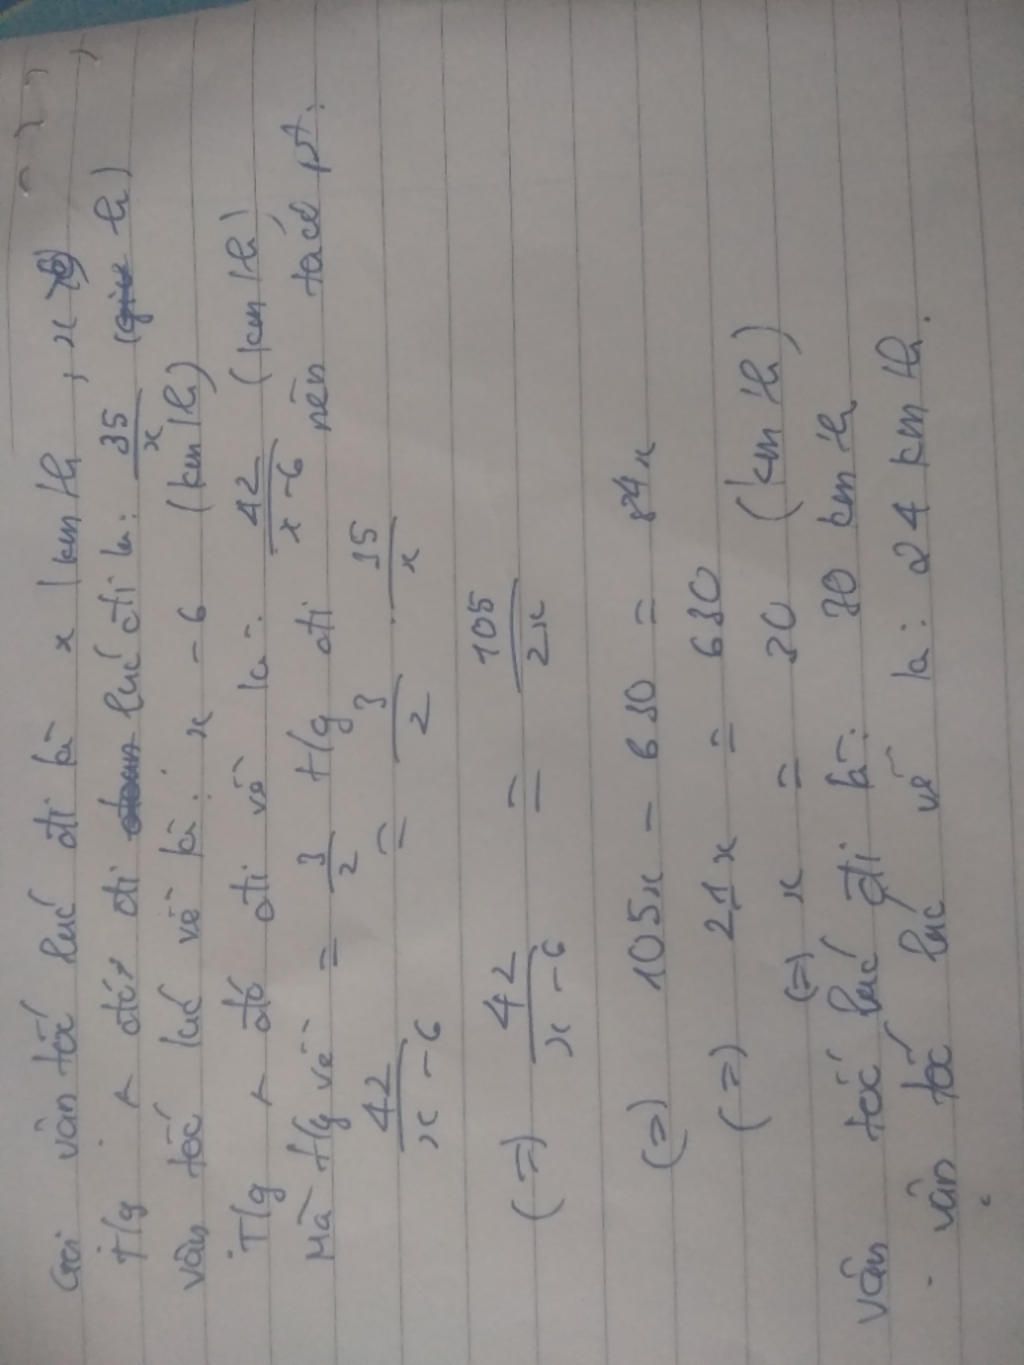 Gọi vân tốc lúc đi là x (km/h, x
t/g ô tô đi lúc đi là: 35/x (h)
vân tốc lúc về là: x - 6 (km/h)
T/g ô tô đi về là: 42/x-6 (km/h)
Mà t/g về = 3/2 t/g đi nên ta có pt:
42/x-6 = 3/2 . 35/x
(=) 42/x-6 = 105/2x
(=) 105x - 630 = 84x
(=) 21x = 630
(=) x = 30 (km/h)
vân tốc lúc đi là: 30 km/h
. vân tốc lúc về là: 24 km/h.